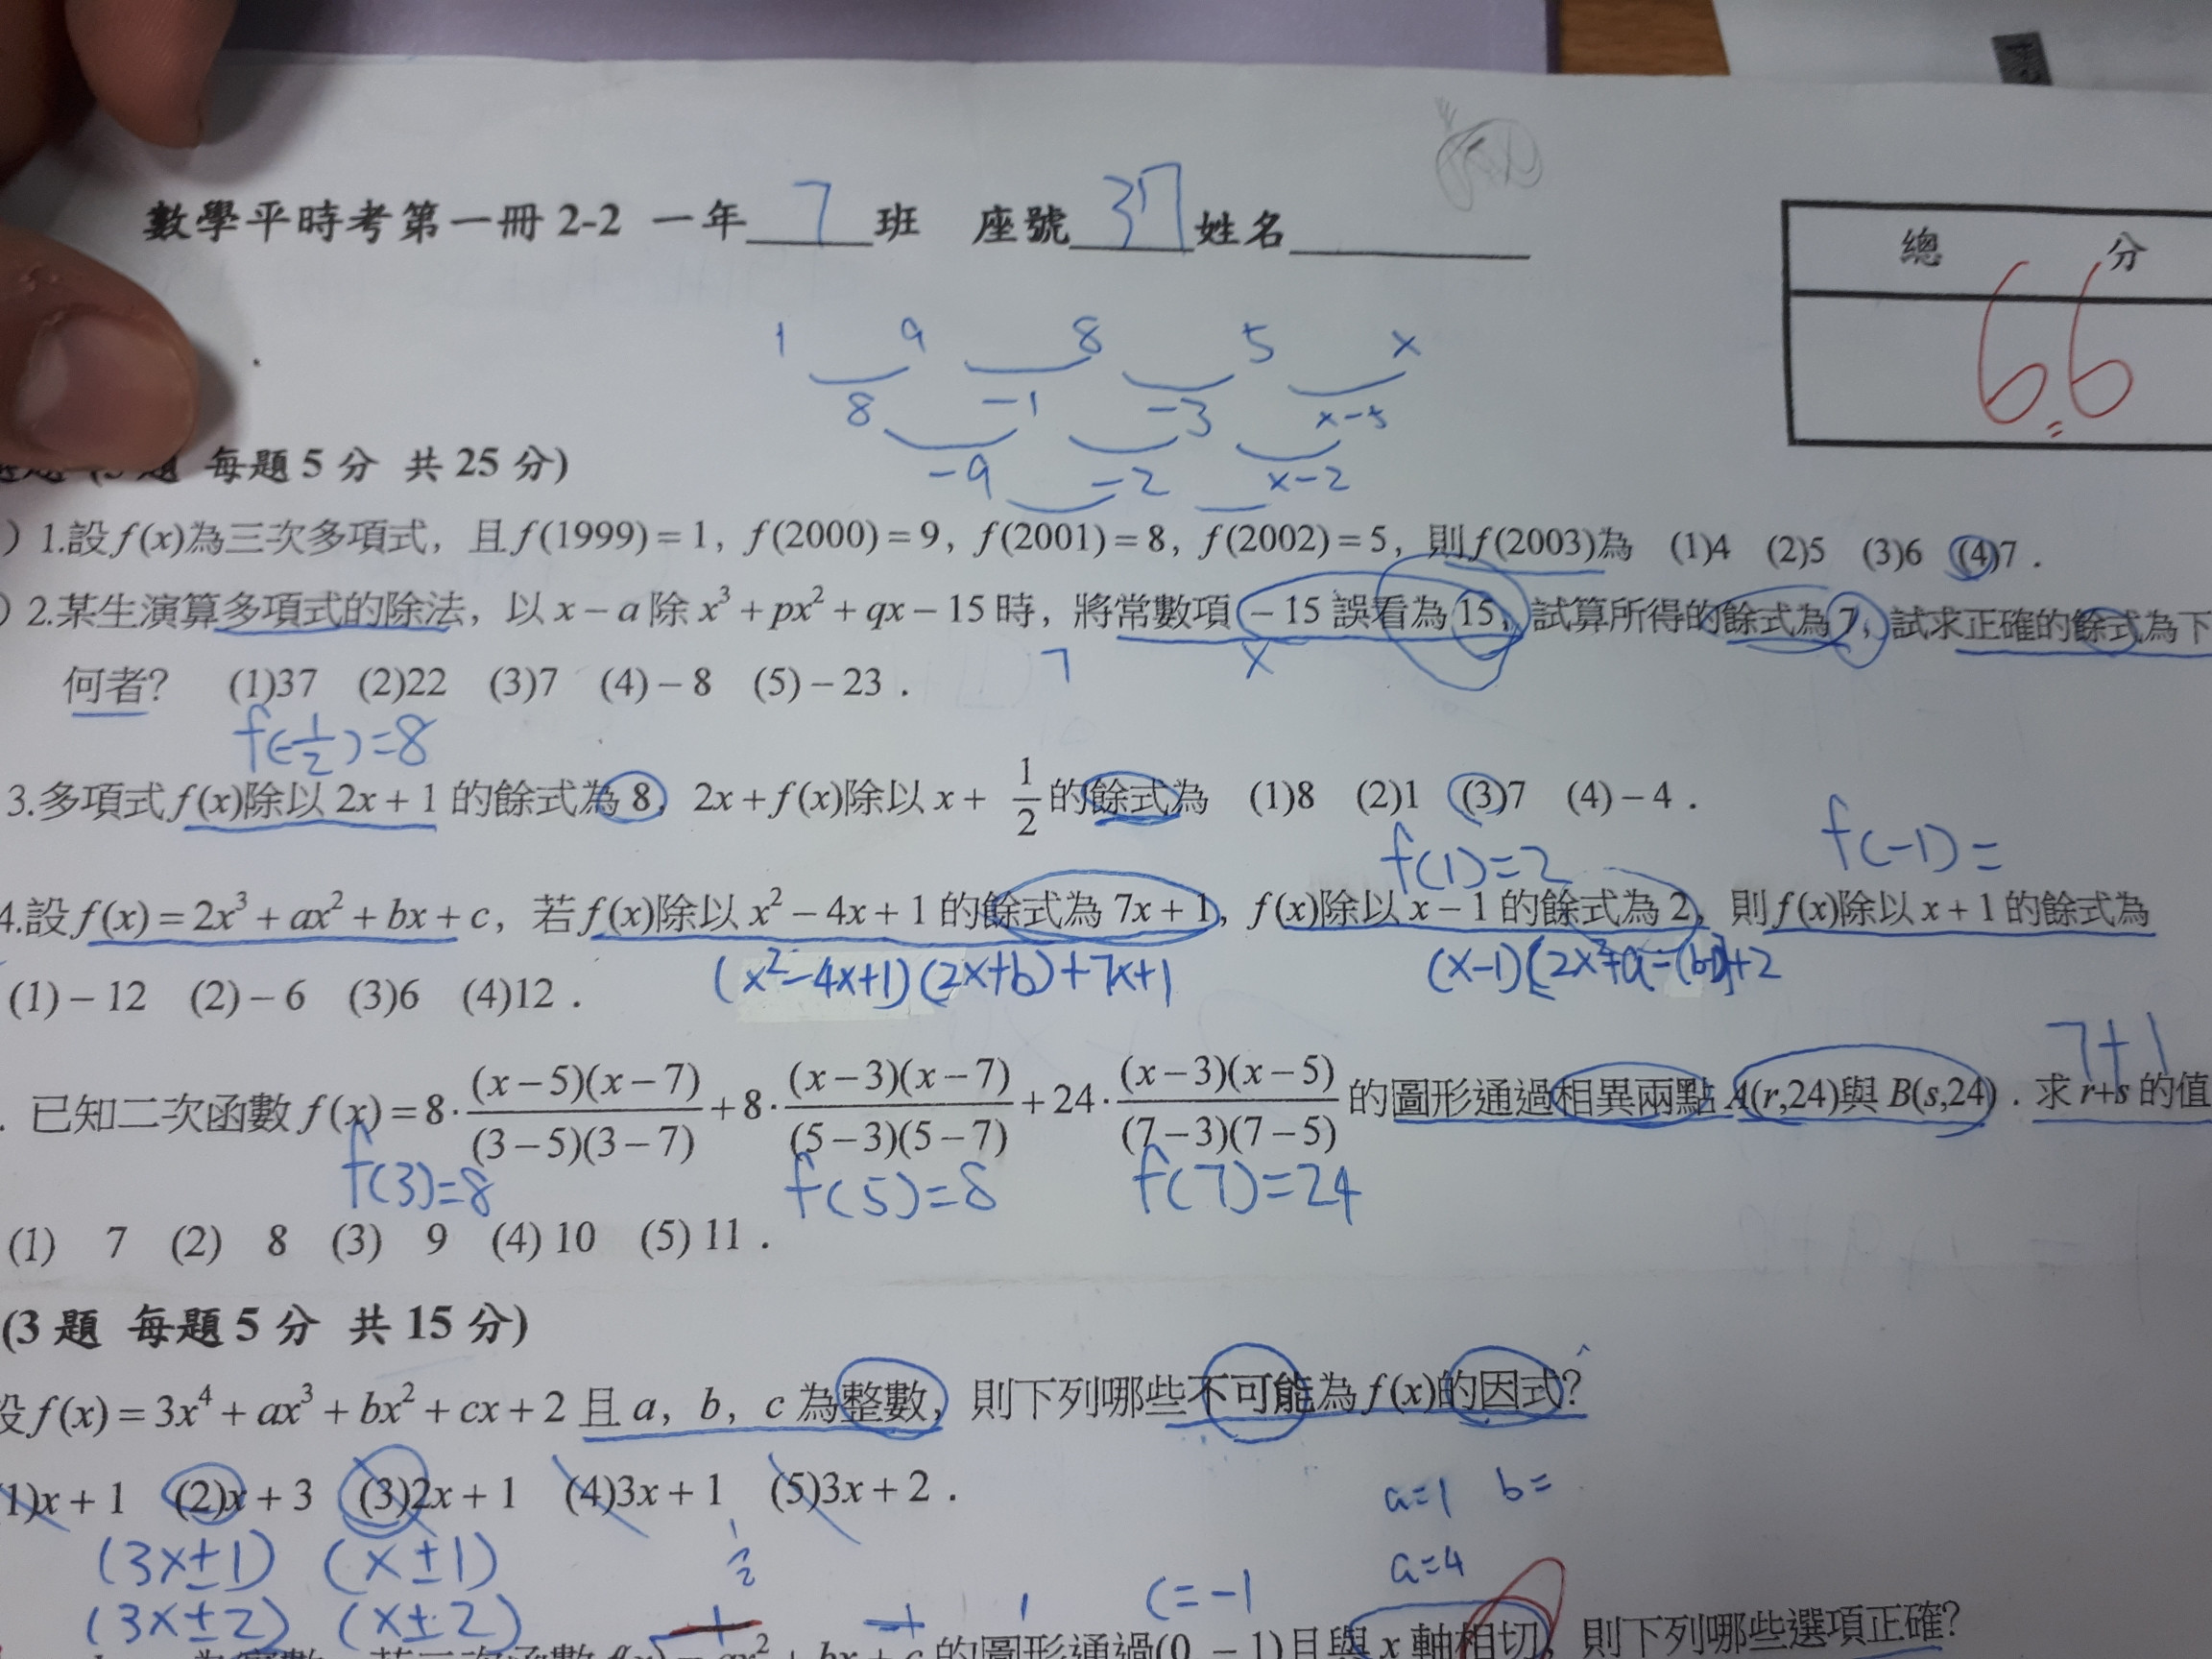 數學平時考第一冊 2-2 一年 7 班 座號 37 姓名
總 分
66
1 9 8 5 x
8 -1 -3 x-5
-9 -2 x-2
題 每題 5 分 共 25 分)
) 1.設 f(x)為三次多項式，且 f(1999) = 1，f(2000) = 9，f(2001) = 8，f(2002) = 5，則 f(2003)為 (1)4 (2)5 (3)6 (4)7．
) 2.某生演算多項式的除法，以 x − a 除 x³ + px² + qx − 15 時，將常數項 − 15 誤看為 15，試算所得的餘式為 7，試求正確的餘式為下
7 x
何者? (1)37 (2)22 (3)7 (4) − 8 (5) − 23．
f(-1/2)=8
3.多項式 f(x)除以 2x + 1 的餘式為 8，2x + f(x)除以 x + 1/2 的餘式為 (1)8 (2)1 (3)7 (4) − 4．
f(1)=2 f(-1)=
4.設 f(x) = 2x³ + ax² + bx + c，若 f(x)除以 x² − 4x + 1 的餘式為 7x + 1，f(x)除以 x − 1 的餘式為 2，則 f(x)除以 x + 1 的餘式為
(x²-4x+1)(2x+b)+7x+1
(1) − 12 (2) − 6 (3)6 (4)12．
7+1
． 已知二次函數 f(x) = 8·(x−5)(x−7)/(3−5)(3−7) + 8·(x−3)(x−7)/(5−3)(5−7) + 24·(x−3)(x−5)/(7−3)(7−5) 的圖形通過相異兩點 A(r,24)與 B(s,24)．求 r+s 的值
f(3)=8 f(5)=8 f(7)=24
(1) 7 (2) 8 (3) 9 (4) 10 (5) 11．
(3 題 每題 5 分 共 15 分)
設 f(x) = 3x⁴ + ax³ + bx² + cx + 2 且 a，b，c 為整數，則下列哪些不可能為 f(x)的因式?
1)x + 1 (2)x + 3 (3)2x + 1 (4)3x + 1 (5)3x + 2．
a=1 b=
(3x±1) (x±1)
a=4
(3x±2) (x±2)
1 c=-1
的圖形通過(0, − 1)且與 x 軸相切，則下列哪些選項正確?